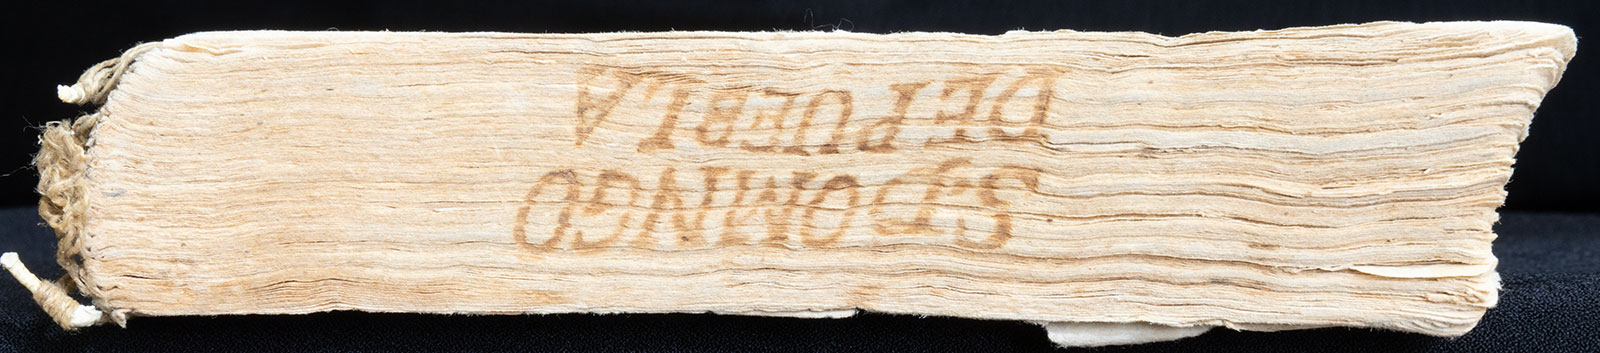 S. DOMINGO
DE PUEBLA